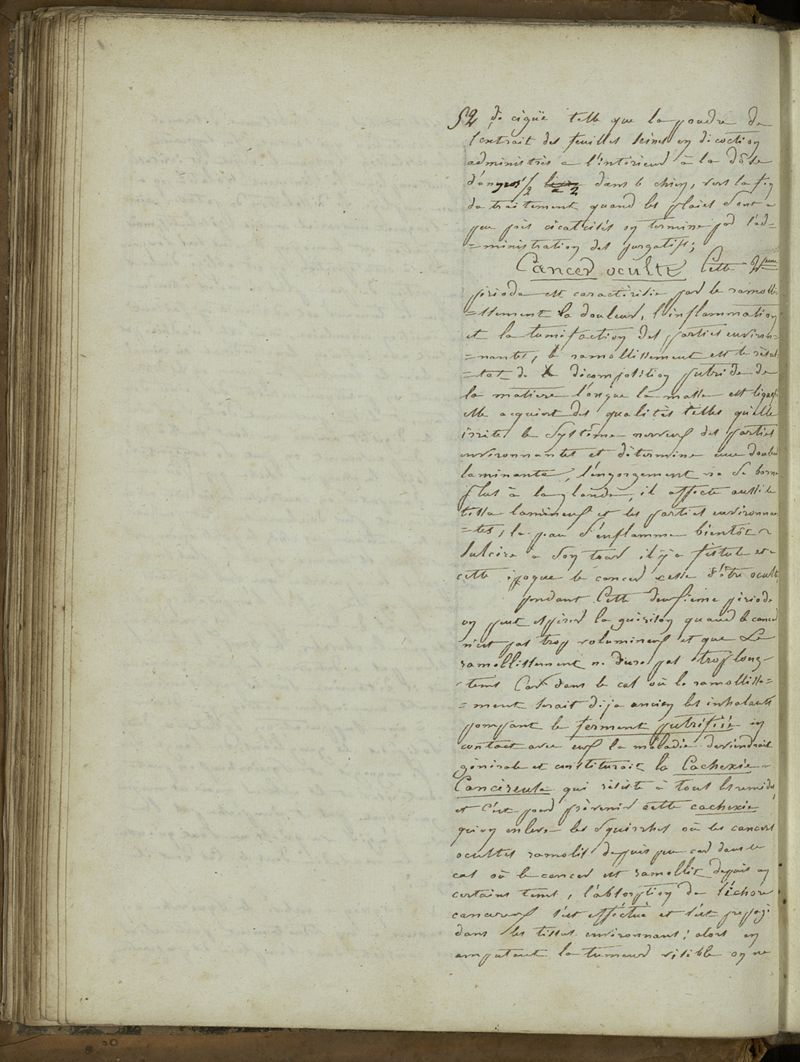 52 de cigüe telle que la poudre de
l'extrait des feuilles seines en dicoction
administrés a l'intérieur à la dôse
d'onçes 1/2 dans le chien, vers la fin
du traitement quand les plaies sont a
peu près cicatrisés on termine par l'ad=
=ministration des purgatifs;
Cancer oculte Cette 2eme
période est caractérisée par le ramoll
=issement la douleur, l'inflammation
et la tumifaction des parties environ=
=nantes, le ramollissement est le résul
=tat de la décomposition putride de
la matiere lorsque la masse est
elle acquiert des qualités telles qu'elle
irrite le système nerveux des parties
environnantes et détermine une douleur
laminante, l'engorgement ne se borne
plus à la glande, il affecte aussi le
tissu lamineux et les parties environnan
=tes, la peau s'enflamme bientôt
sulcire a son tour il y a fistule et a
cette époque le cancer cesse d'être oculte
pendant cette deuxieme période
on peut espérer la guérison quand le cancer
n'est pas trop volumineux et que le
ramollissement ne dure pas trop long-
tems Car dans le cas où le ramollisse=
=ment serait dija ancien les inhalants
pompant le ferment putrifiée en
contact avec eux la maladie deviendrait
générale et constiturait la Cachexie
Cancéreuse qui résiste à tout les remides
et c'est pour prévenir cette cachexie
qu'on enleve les squirrhes où les cancers
ocultes ramolis depuis peu car dans le
cas où le cancer est ramollit depuis un
certains tems, l'absorption de l'ichore
cancereux s'est efféctué et s'est propagé
dans les tissus environnant; alors en
amputant la tumeur visible on ne